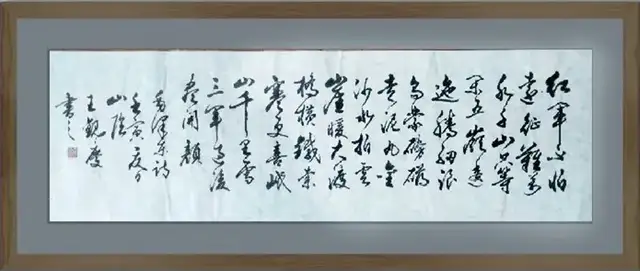 紅軍不怕
遠征難萬
水千山只等
閑五嶺逶
迤騰細浪
烏蒙磅礴
走泥丸金
沙水拍雲
崖暖大渡
橋橫鐵索
寒更喜岷
山千里雪
三軍過後
盡開顏
毛澤東詩
壬寅夏月
山陰
王觀慶
書之